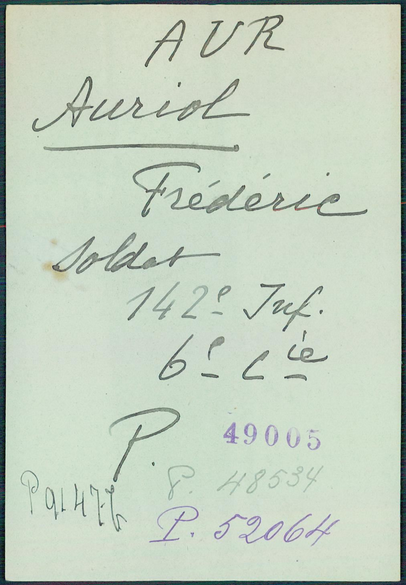 AUR
Auriol
Frédéric
soldat
142e Inf.
6e Cie
P. 49005
P. 48534
P. 52064